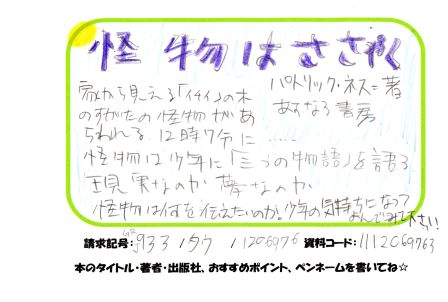 怪物はささやく
パトリック・ネス=著
あすなろ書房
家から見える「イチイ」の木
のすがたの怪物があ
らわれる。12時7分に……
怪物は少年に「三つの物語」を語る
現実なのか 夢なのか
怪物は何を伝えたいのか?少年の気持ちになって
よんでみて下さい!
請求記号: 933 /タウ / 1206976 資料コード: 1112069763
本のタイトル・著者・出版社、おすすめポイント、ペンネームを書いてね☆